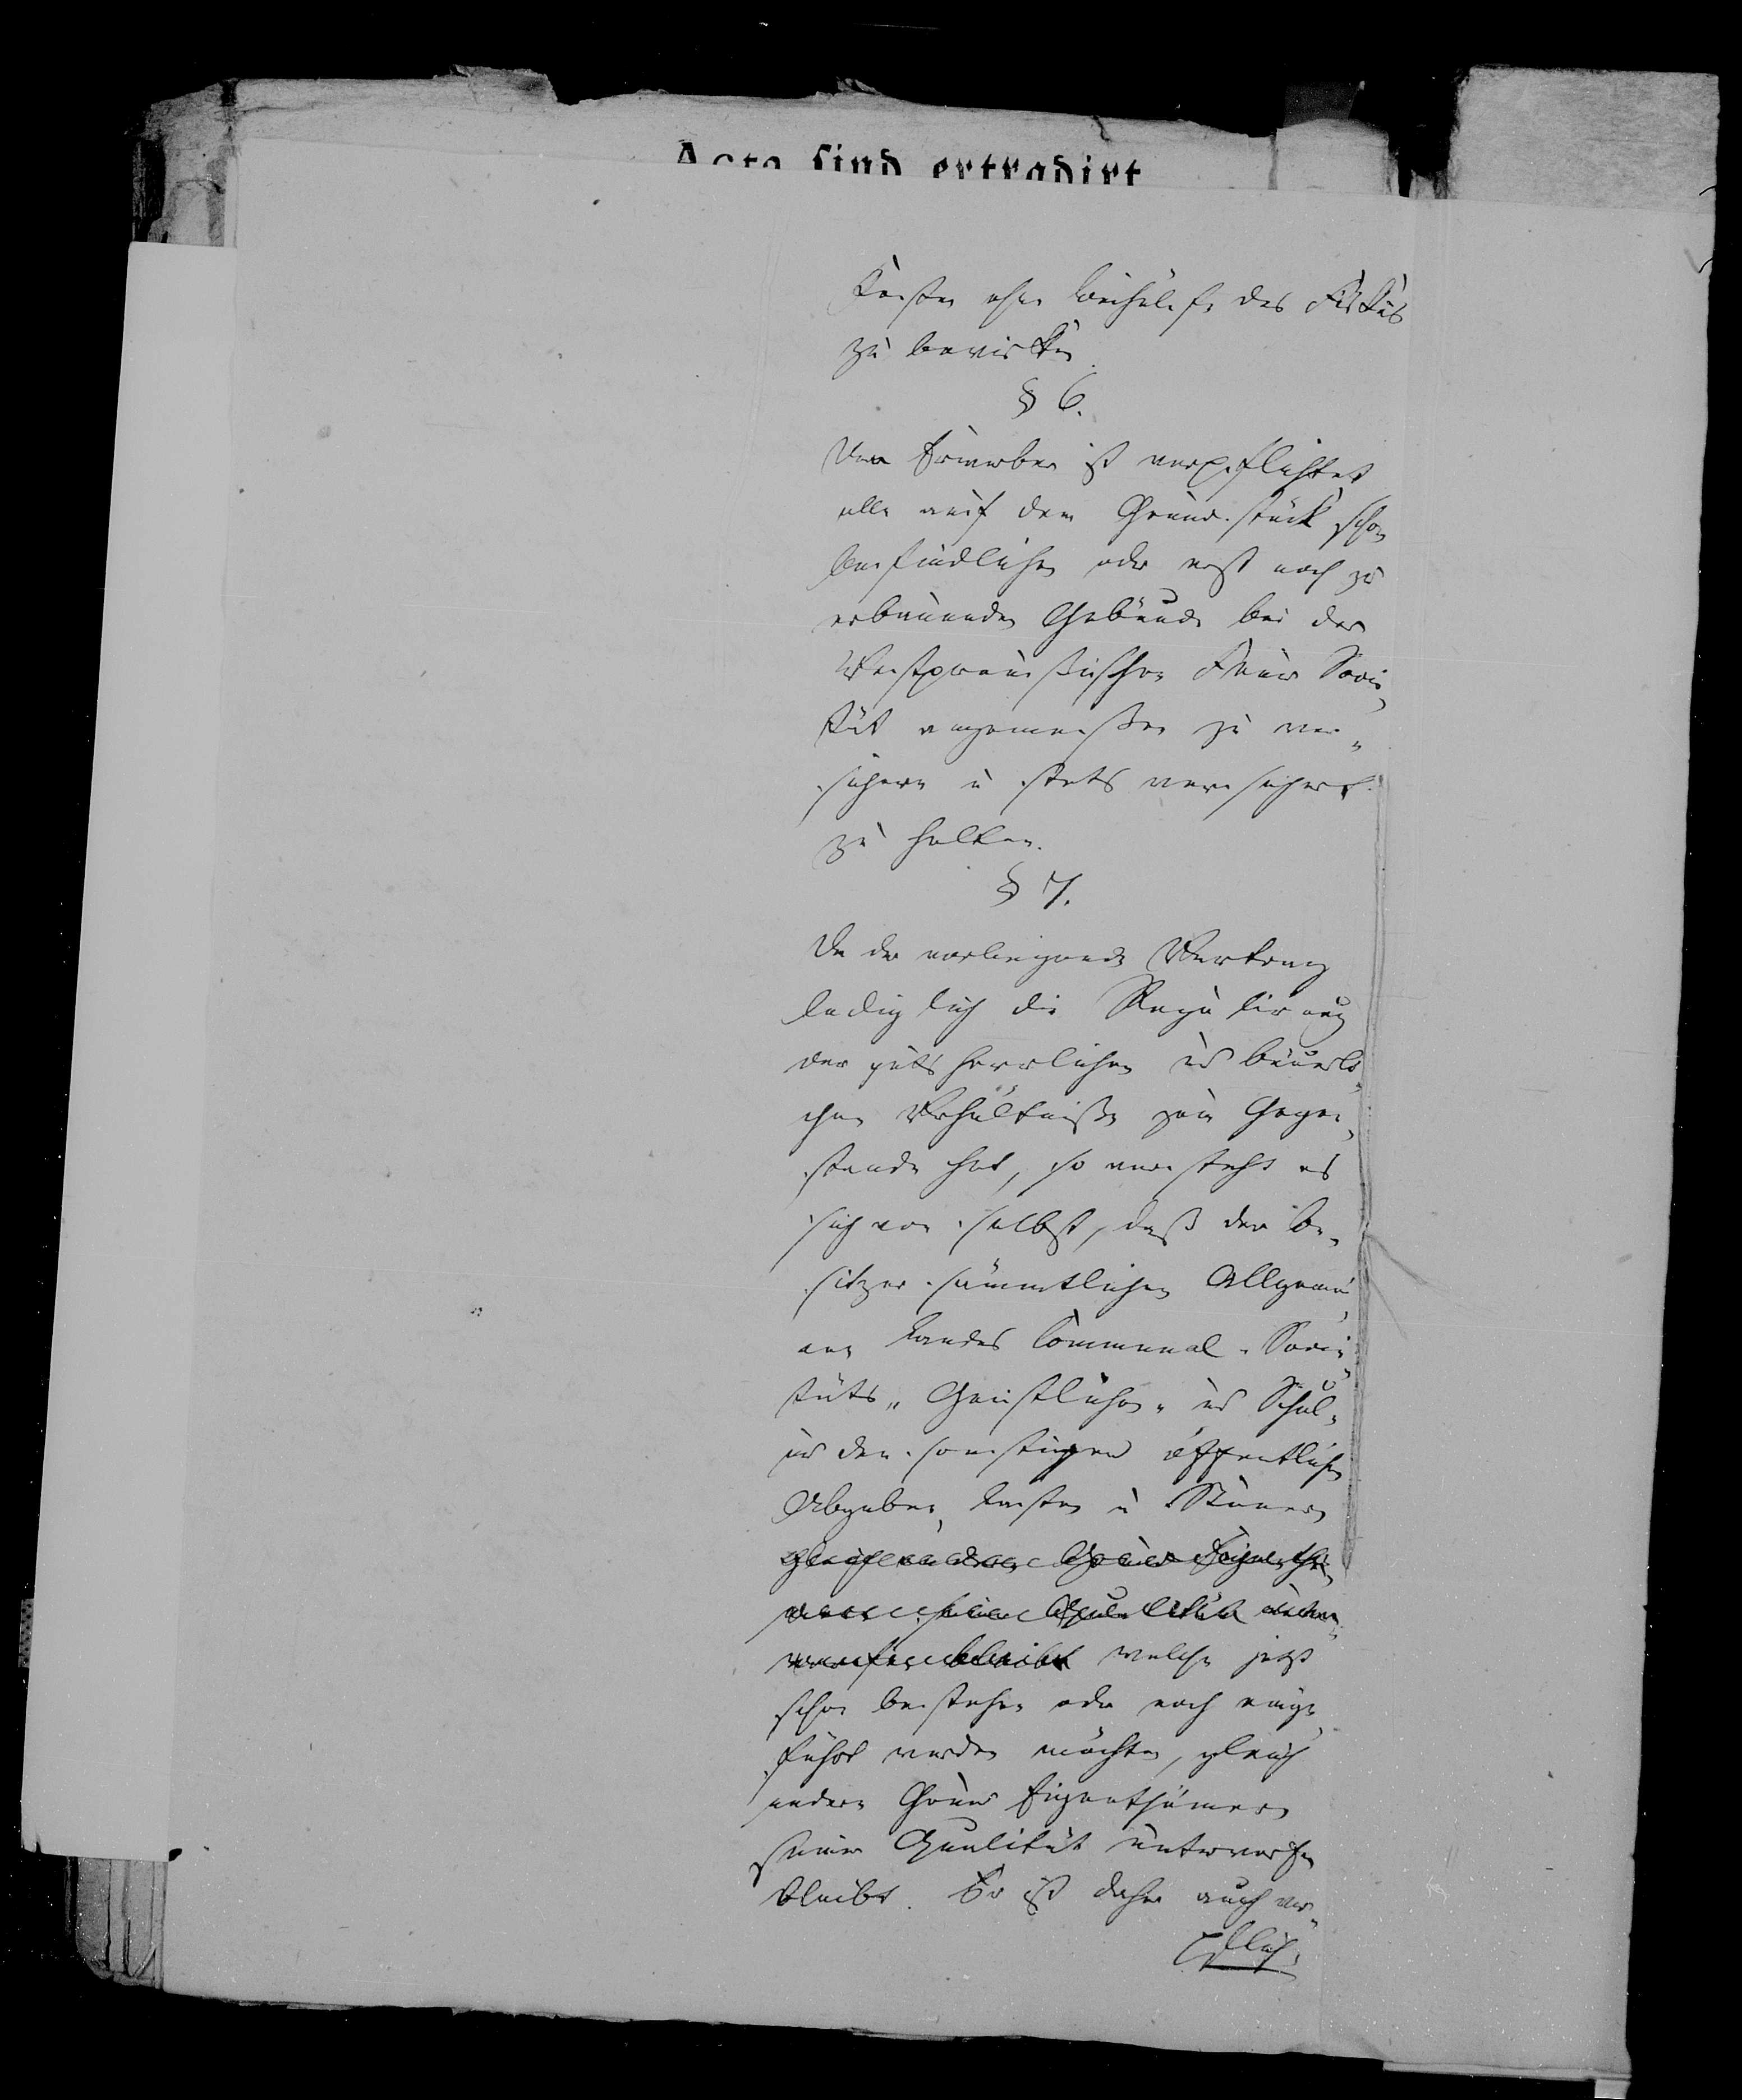 Acta sind extradirt
Kosten ohne Beihülfe des Fiskus
zu bewirken.
§ 6.
Der Erwerber ist verpflichtet
alle auf dem Grundstück schon
befindlichen oder erst noch zu
erbauenden Gebäude bei der
Westpreußischen Feuer Socie„
tät angemessen zu ver„
sichern u stets versichert
zu halten.
§ 7.
Da der vorliegende Vertrag
lediglich die Regulirung
der gutsherrlichen und bäuerli„
chen Verhältniße zum Gegen„
stande hat, so versteht es
sich von selbst, daß der Be„
sitzer sämmtlichen Allgemei„
nen Landes Communal- Socie„
täts„ Geistlichen„ und Schul„
und den sonstigen öffentlichen
Abgaben, Lasten u Steuern
gleich andern Grund Eigenthü„
mern seiner Qualität unter„
worfen bleibt welche jetzt
schon bestehen oder noch einge„
führt werden möchten, gleich
andern Grund Eigenthümern
seiner Qualität unterworfen
bleibt. Er ist daher auch ver„
pflich„